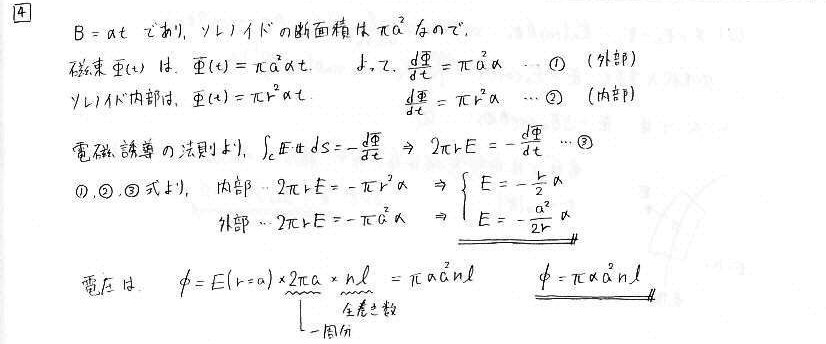 4
B = αt であり、ソレノイドの断面積は πa² なので、
磁束 Φ(t) は、Φ(t) = πa²αt. よって、dΦ/dt = πa²α … ① (外部)
ソレノイド内部は、Φ(t) = πr²αt. dΦ/dt = πr²α … ② (内部)
電磁誘導の法則より、∫c E·t ds = -dΦ/dt ⇒ 2πrE = -dΦ/dt … ③
①,②,③式より、 内部 … 2πrE = -πr²α ⇒ { E = -r/2 α
外部 … 2πrE = -πa²α ⇒ E = -a²/2r α
電圧は、 φ = E(r=a) × 2πa × nl = παa²nl φ = παa²nl
全巻き数
一周分